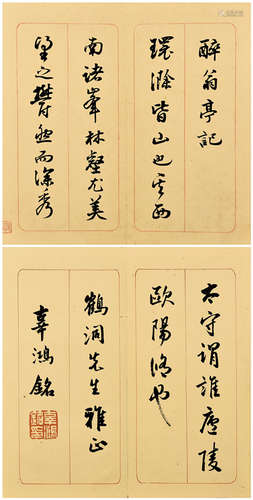 醉翁亭記
環滁皆山也其西
南諸峯林壑尤美
望之蔚然而深秀
太守謂誰廬陵
歐陽脩也
鶴洞先生雅正
辜鴻銘